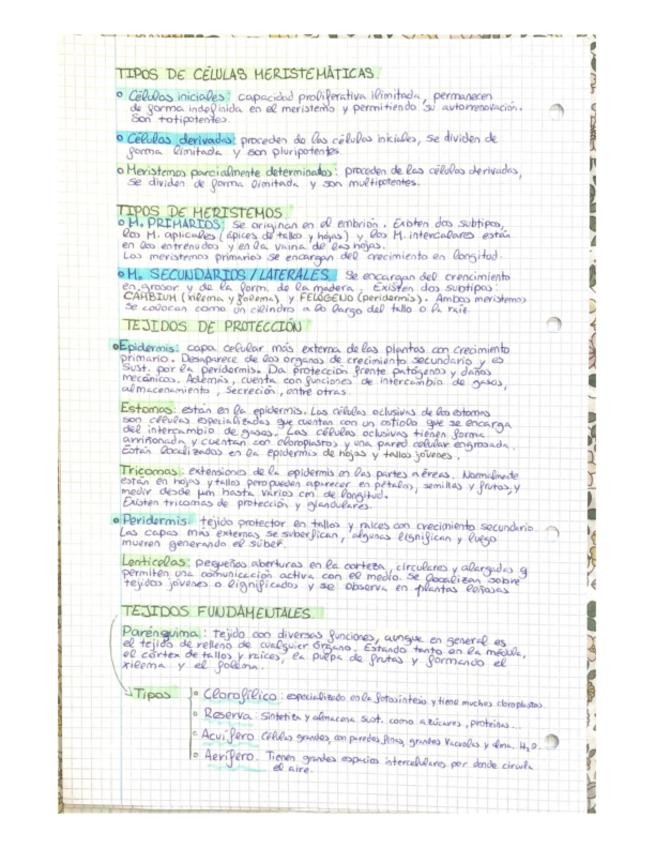 TIPOS DE CÉLULAS MERISTEMÁTICAS
Células iniciales: capacidad proliferativa ilimitada, permanecen
de forma indefinida en el meristemo y permitiendo su autorrenovación.
Son totipotentes.
Células derivadas: proceden de las células iniciales, se dividen de
forma limitada y son pluripotentes.
Meristemos parcialmente determinados: proceden de las células derivadas,
se dividen de forma limitada y son multipotentes.
TIPOS DE MERISTEMOS
M. PRIMARIOS: Se originan en el embrión. Existen dos subtipos,
los M. aplicales (ápices de tallo y hojas) y los M. intercalares están
en los entrenudos y en la vaina de las hojas.
Los meristemos primarios se encargan del crecimiento en longitud.
M. SECUNDARIOS/LATERALES. Se encargan del crencimiento
en grosor y de la forma de la madera. Existen dos subtipos:
CAMBIUM (xilema y floema) y FELÓGENO (peridermis). Ambos meristemos
se colocan como un cilindro a lo largo del tallo o la raíz.
TEJIDOS DE PROTECCIÓN
Epidermis: capa celular más externa de las plantas con crecimiento
primario. Desaparece de los organos de crecimiento secundario y es
sust. por la peridermis. Da protección frente patógenos y daños
mecánicos. Además, cuenta con funciones de intercambio de gases,
almacenamiento, secreción, entre otras.
Estomas: están en la epidermis. Las células oclusivas de los estomas
son células especializadas que cuentan con un ostiolo que se encarga
del intercambio de gases. Las células oclusivas tienen forma
arriñonada y cuentan con cloroplastos y una pared celular engrosada.
Están localizados en la epidermis de hojas y tallos jóvenes.
Tricomas: extensiones de la epidermis en las partes aéreas. Normalmente
están en hojas y tallos pero pueden aparecer en pétalos, semillas y frutos, y
medir desde μm hasta varios cm de longitud.
Existen tricomas de protección y glandulares.
Peridermis: tejido protector en tallos y raíces con crecimiento secundario.
Las capas más externas se suberifican, algunas lignifican y luego
mueren generando el súber.
Lenticelas: pequeñas aberturas en la corteza, circulares y alargadas q
permiten una comunicación activa con el medio. Se localizan sobre
tejidos jóvenes o lignificados y se observa en plantas leñosas
TEJIDOS FUNDAMENTALES
Parénquima: tejido con diversas funciones, aunque en general es
el tejido de relleno de cualquier órgano. Estando tanto en la médula,
el córtex de tallos y raíces, la pulpa de frutas y formando el
xilema y el floema.
Tipos
Clorofílico: especializado en la fotosíntesis y tiene muchos cloroplastos.
Reserva: sintetiza y almacena sust. como azúcares, proteínas...
Acuífero Células grandes, con paredes finas, grandes vacuolas y alma. H₂O.
Aerífero. Tienen grandes espacios intercelulares por donde circula
el aire.